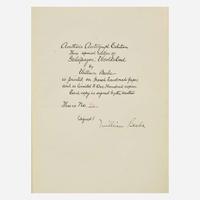 Author's Autograph Edition
This special edition of
Galapagos: World's End
by
William Beebe
is printed on French handmade paper
and is limited to One Hundred copies
Each copy is signed by the author
This is No.
Signed/
William Beebe